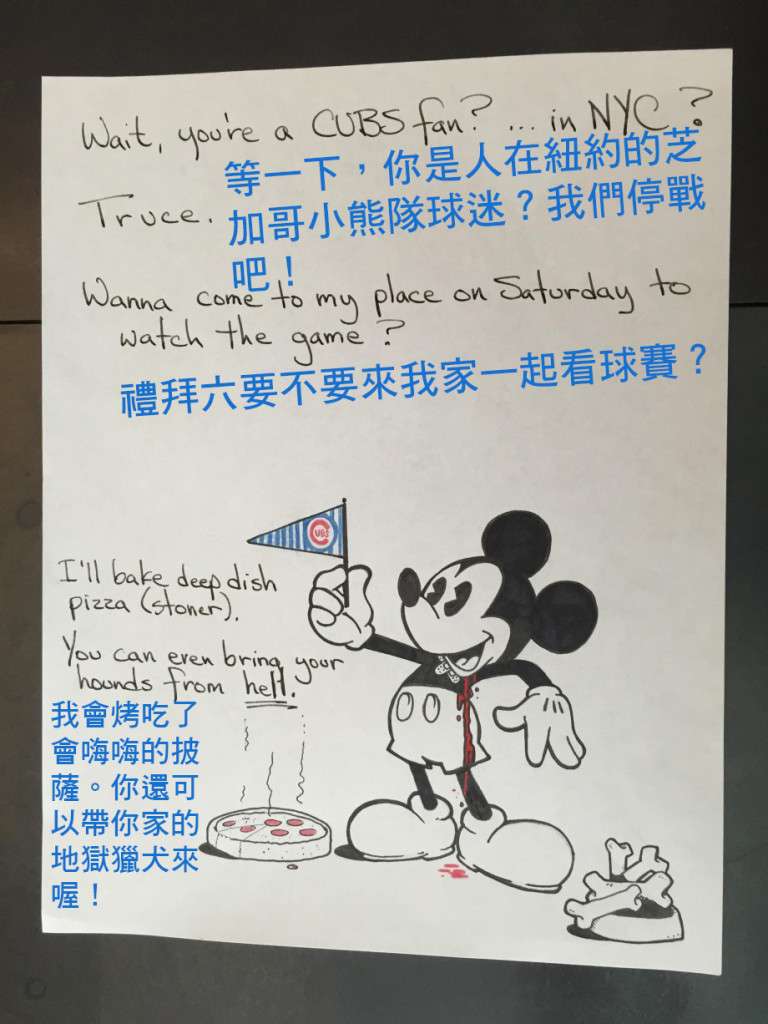 Wait, you're a CUBS fan? ... in NYC?
等一下，你是人在紐約的芝
Truce.
加哥小熊隊球迷？我們停戰
吧！
Wanna come to my place on Saturday to
watch the game?
禮拜六要不要來我家一起看球賽？
CUBS
I'll bake deep dish
pizza (stoner).
You can even bring your
hounds from hell.
我會烤吃了
會嗨嗨的披
薩。你還可
以帶你家的
地獄獵犬來
喔！